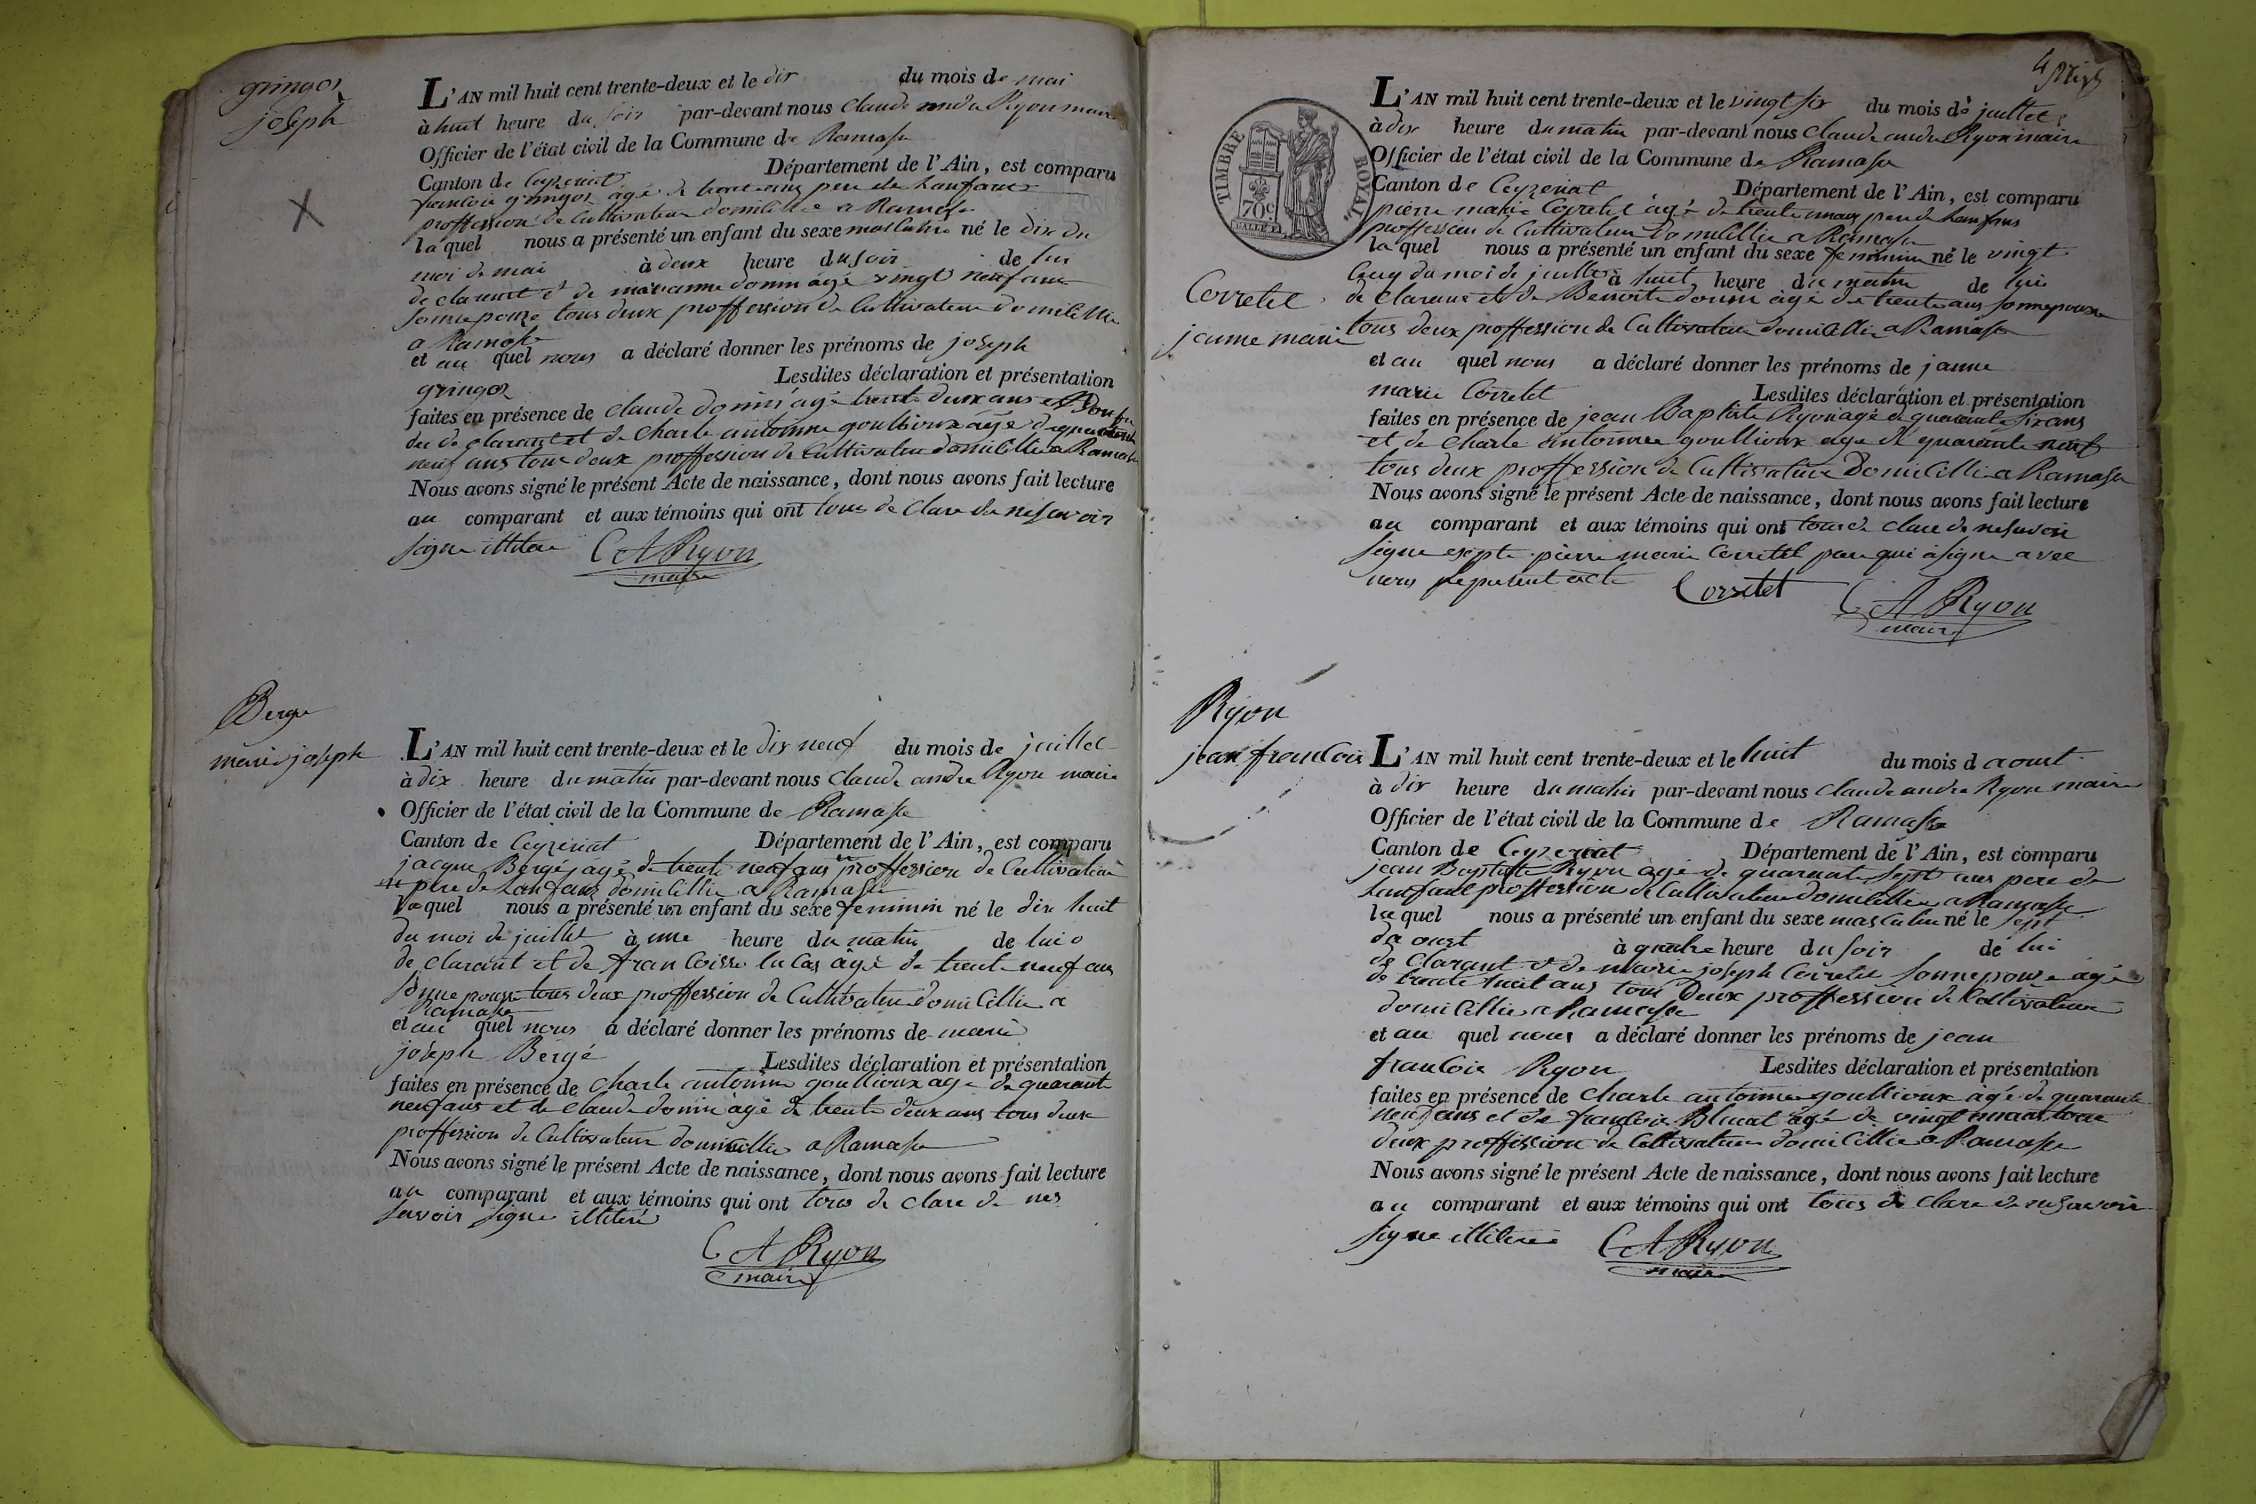 gringoz
joseph
L'AN mil huit cent trente-deux et le dix du mois de mai
à huit heure du soir par-devant nous claude andre Ryon maire
Officier de l'état civil de la Commune de Ramasse
Canton de Ceyzeriat Département de l'Ain, est comparu
francois gringoz agé de trente ans pere de lanfant
proffession de Cultivateur domicillie a Ramasse
laquel nous a présenté un enfant du sexe masculin né le dix du
moi de mai à deux heure du soir de lui
de clarant et de marianne domin agé vingt neuf ans
sonnepouze tous deux proffession de Cultivateur domicillie
a Ramasse
et au quel nous a déclaré donner les prénoms de joseph
gringoz Lesdites déclaration et présentation
faites en présence de claude domin agé trente deux ans et
du de clarant et de charle antoinne goullioux agé de quarante
neuf ans tous deux proffession de Cultivateur domicillie a Ramasse
Nous avons signé le présent Acte de naissance, dont nous avons fait lecture
au comparant et aux témoins qui ont tous de clare de nesavoir
signe illitere CA Ryon
maire
Berge
marie joseph
L'AN mil huit cent trente-deux et le dix neuf du mois de juillet
à dix heure du matin par-devant nous claude andre Ryon maire
Officier de l'état civil de la Commune de Ramasse
Canton de Ceyzeriat Département de l'Ain, est comparu
jacque Bergé agé de trente neuf ans proffession de Cultivateur
pere de lanfant domicillie a Ramasse
laquel nous a présenté un enfant du sexe feminin né le dix huit
du moi de juillet à une heure du matin de lui
de clarant et de francoisse lucas agé de trente neuf ans
sonnepouse tous deux proffession de Cultivateur domicillie a
Ramasse
et au quel nous a déclaré donner les prénoms de marie
joseph Bergé Lesdites déclaration et présentation
faites en présence de charle antoinne goullioux age de quarante
neuf ans et de claude domin agé de trente deux ans tous deux
proffission de Cultivateur domicillie a Ramasse
Nous avons signé le présent Acte de naissance, dont nous avons fait lecture
au comparant et aux témoins qui ont tous de clare de nes
savoir signe illiteré
CA Ryon
maire
TIMBRE ROYAL
70c
L'AN mil huit cent trente-deux et le vingt six du mois de juillet
à dix heure du matin par-devant nous claude andre Ryon maire
Officier de l'état civil de la Commune de Ramasse
Canton de Ceyzeriat Département de l'Ain, est comparu
pierre marie Corretel agé de trente pere de lanfans
proffession de Cultivateur domicillie a Ramasse
laquel nous a présenté un enfant du sexe feminin né le vingt
Cinq du moi de juillet à huit heure du matin de lui
Corretel
de clarant et de Benoite domin agé de trente ans sonnepouse
jeanne marie
tous deux proffession de Cultivateur domicillie a Ramasse
et au quel nous a déclaré donner les prénoms de janne
marie Corretel Lesdites déclaration et présentation
faites en présence de jean Baptiste Ryon agé de quarante six ans
et de Charle antoinne goullioux age de quarante neuf
tous deux proffession de Cultivateur Domicillie a Ramasse
Nous avons signé le présent Acte de naissance, dont nous avons fait lecture
au comparant et aux témoins qui ont tous de clare de nesavoir
signe exepte pierre marie Corretel pere qui a signe avec
nous le present acte Corretet CA Ryon
maire
Ryon
jean francois
L'AN mil huit cent trente-deux et le huit du mois d aout
à dix heure du matin par-devant nous claude andre Ryon maire
Officier de l'état civil de la Commune de Ramasse
Canton de Ceyzeriat Département de l'Ain, est comparu
jean Baptiste Ryon agé de quarante sept ans pere de
lanfant proffession de Cultivateur domicillie a Ramasse
laquel nous a présenté un enfant du sexe masculin né le sept
da oust à quatre heure du soir de lui
de clarant et de marie joseph Corretel sonnepouse agé
de trente huit ans tous deux proffession de Cultivateur
domicillie a Ramasse
et au quel nous a déclaré donner les prénoms de jean
francois Ryon Lesdites déclaration et présentation
faites en présence de charle antoinne goullioux agé de quarante
neuf ans et de francois agé de vingt tous
deux proffission de Cultivateur domicillie a Ramasse
Nous avons signé le présent Acte de naissance, dont nous avons fait lecture
au comparant et aux témoins qui ont tous de clare de nesavoir
signe illitere CA Ryon
maire